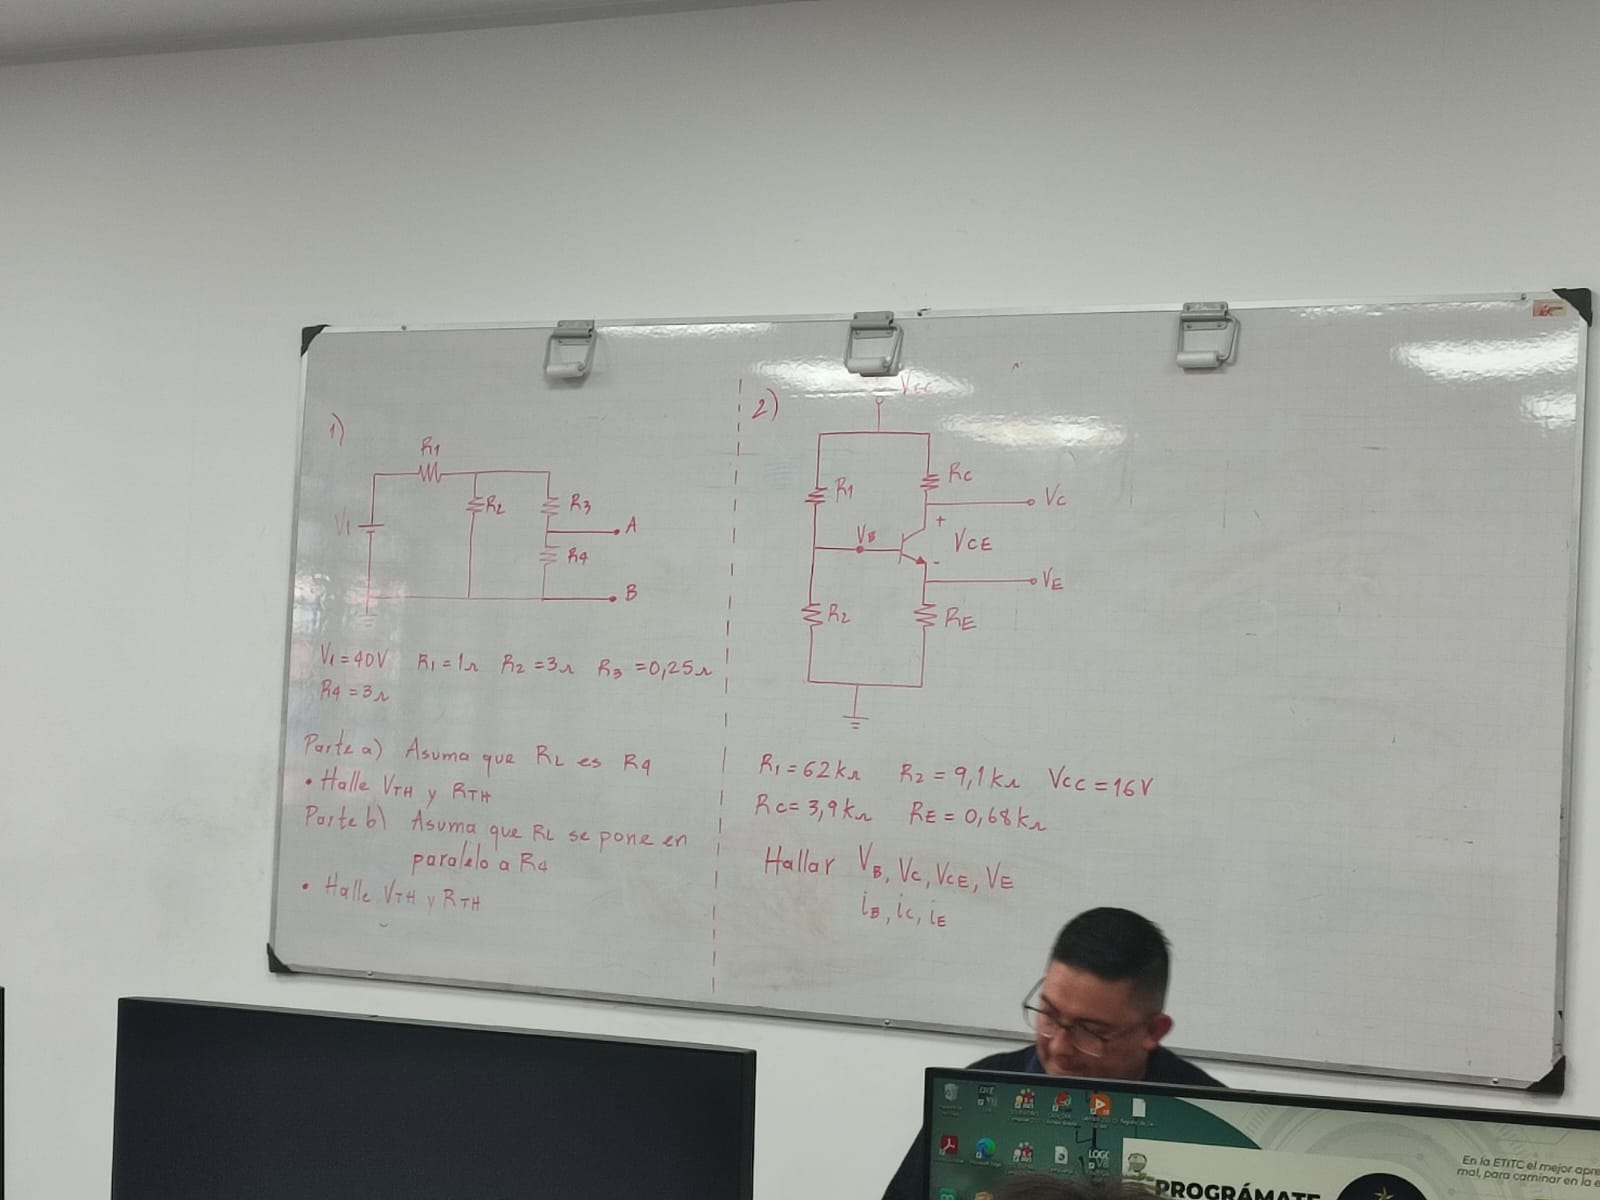 1)
R1
R2
R3
A
V1
R4
B
V1 = 40V R1 = 1Ω R2 = 3Ω R3 = 0,25Ω
R4 = 3Ω
Parte a) Asuma que RL es R4
• Halle VTH y RTH
Parte b) Asuma que RL se pone en
paralelo a R4
• Halle VTH y RTH
2)
Vcc
R1
RC
VC
VB
+
VCE
-
VE
R2
RE
R1 = 62kΩ R2 = 9,1kΩ VCC = 16V
RC = 3,9kΩ RE = 0,68kΩ
Hallar VB, VC, VCE, VE
iB, iC, iE
En la ETITC el mejor
mal, para caminar en la
PROGRÁMATE